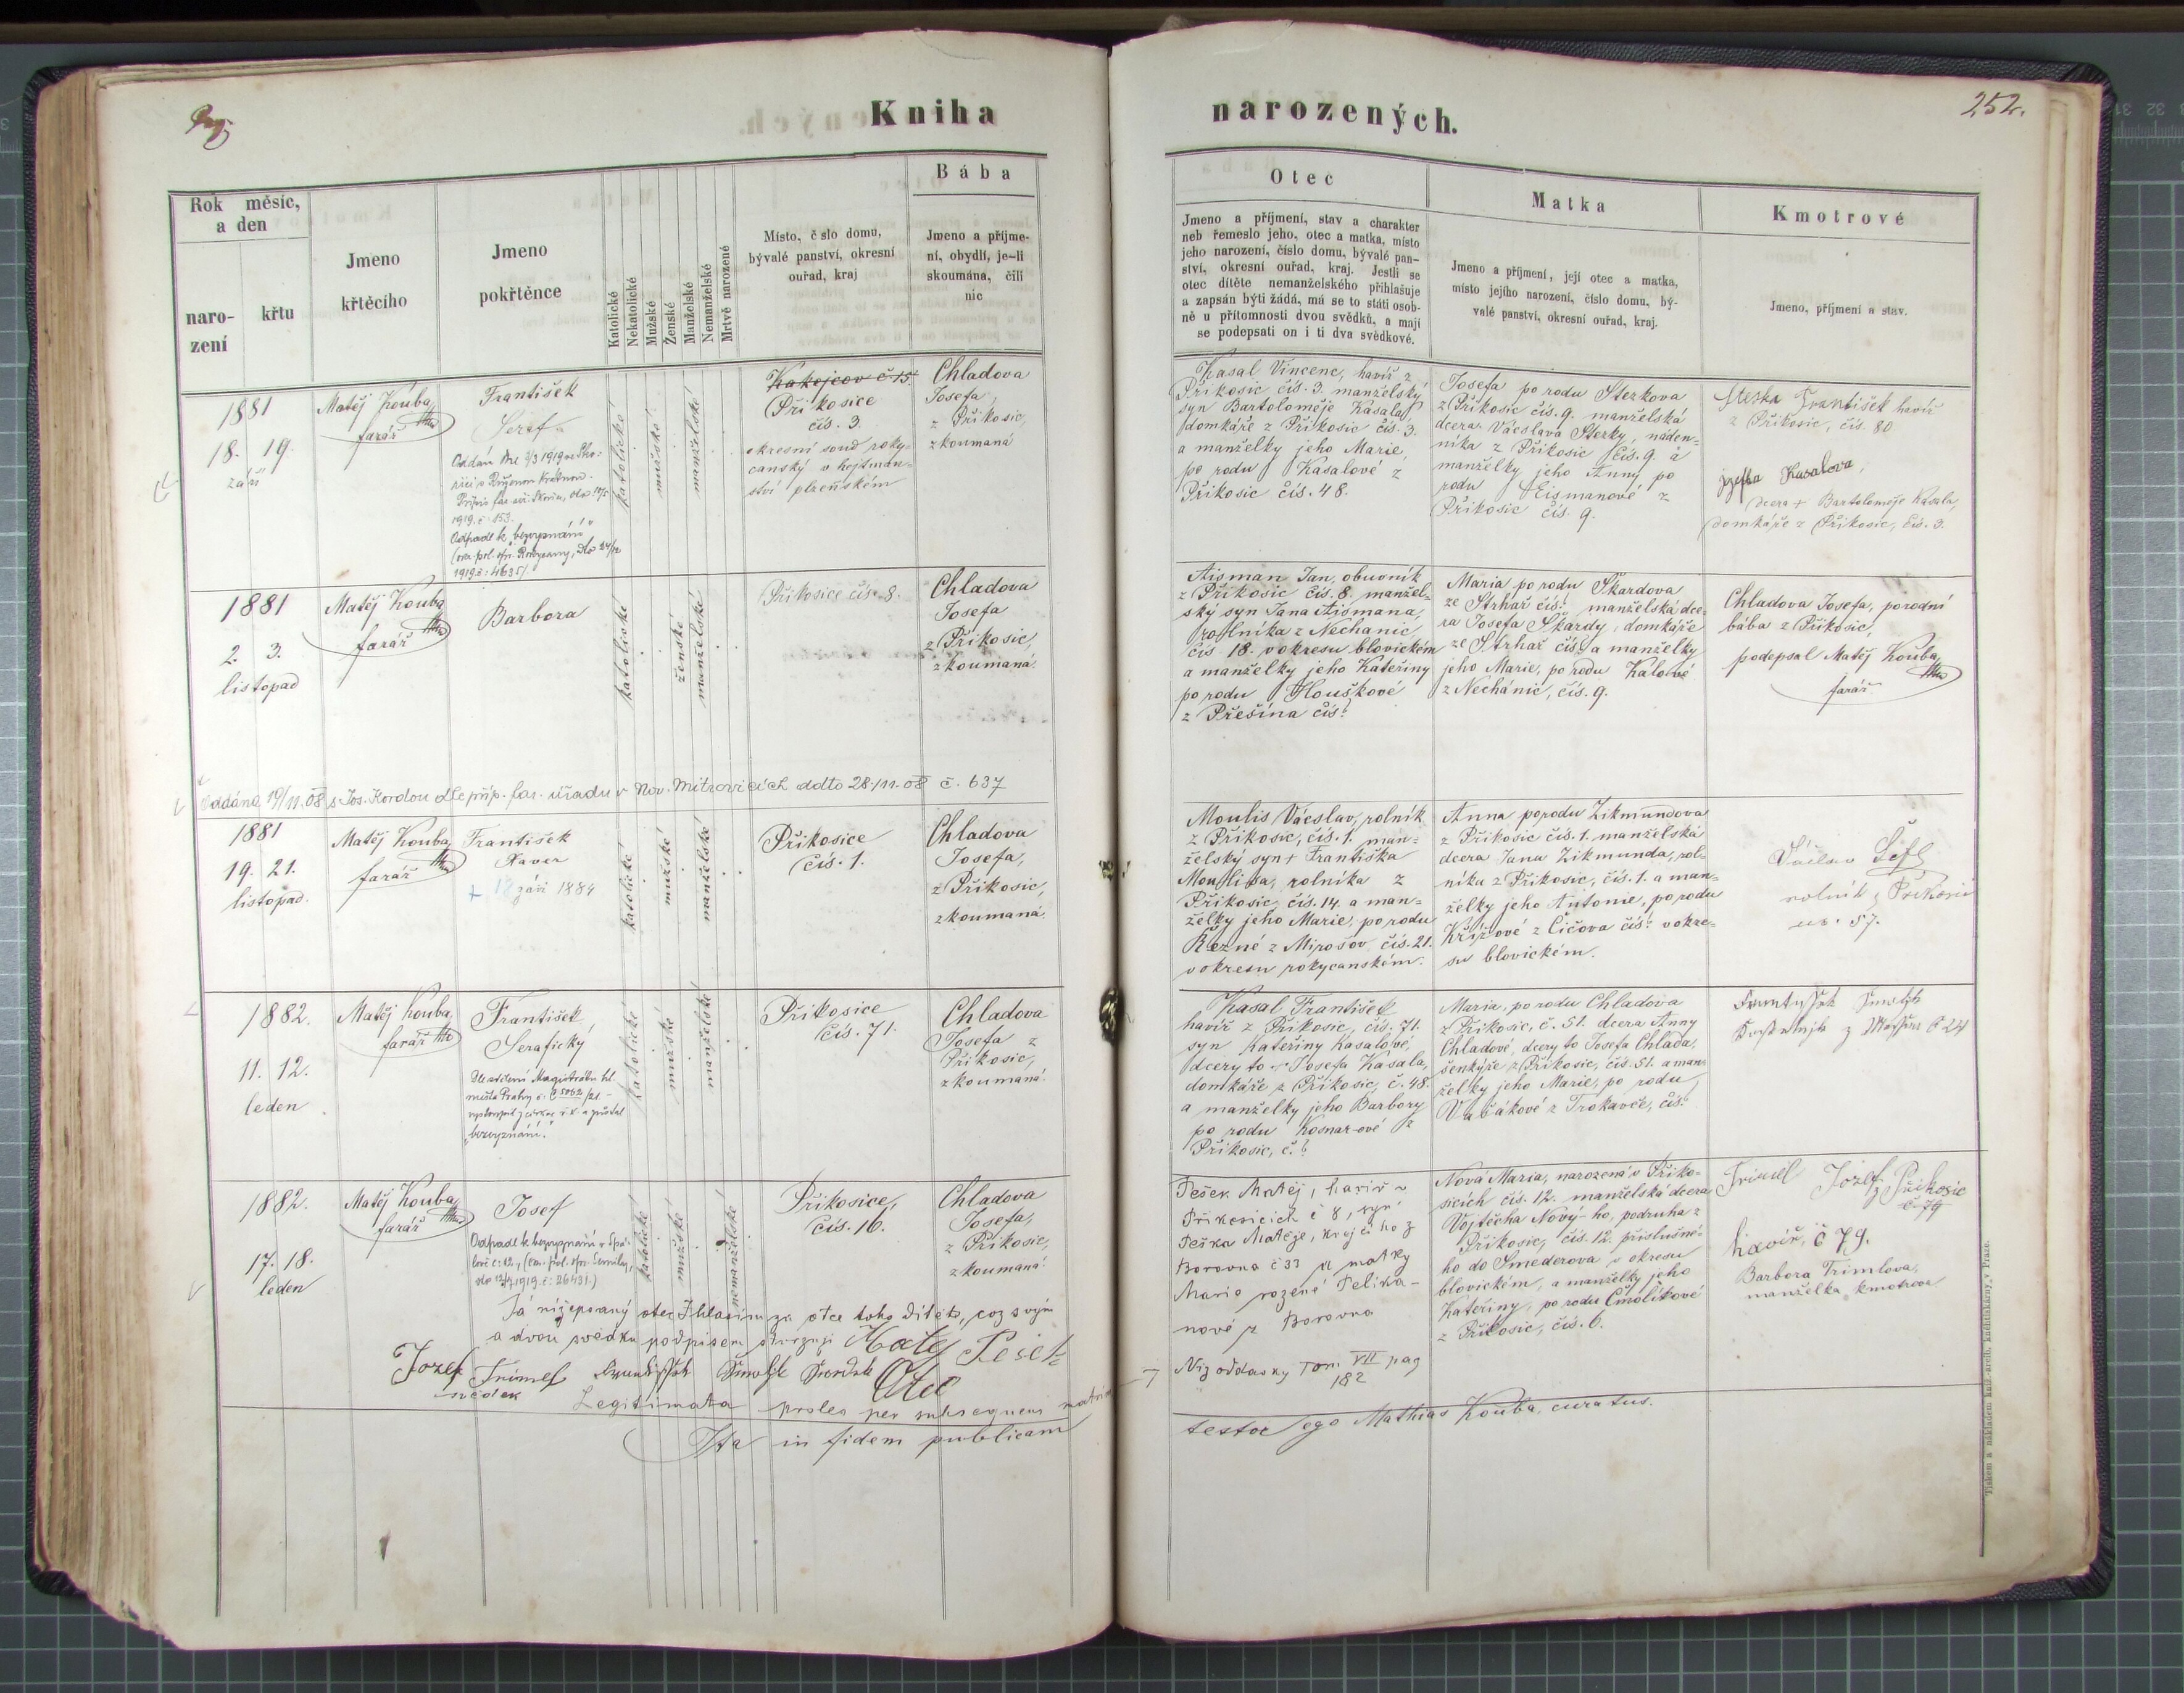 Kniha
narozených.
252.
Rok měsíc,
a den
naro-
zení
křtu
Jmeno
křtěcího
Jmeno
pokřtěnce
Katolické
Nekatolické
Mužské
Ženské
Manželské
Nemanželské
Mrtvě narozené
Místo, č slo domu,
bývalé panství, okresní
ouřad, kraj
Bába
Jmeno a příjme-
ní, obydlí, je-li
skoumána, čili
nic
Otec
Jmeno a příjmení, stav a charakter
neb řemeslo jeho, otec a matka, místo
jeho narození, číslo domu, bývalé pan-
ství, okresní ouřad, kraj. Jestli se
otec dítěte nemanželského přihlašuje
a zapsán býti žádá, má se to státi osob-
ně u přítomnosti dvou svědků, a mají
se podepsati on i ti dva svědkové.
Matka
Jmeno a příjmení, její otec a matka,
místo jejího narození, číslo domu, bý-
valé panství, okresní ouřad, kraj.
Kmotrové
Jmeno, příjmení a stav.
1881
18. 19.
září
Matěj Kouba
farář
František
Seraf
Oddán dne 3/3 1919 ve Sko-
řici s Růženou
1919. č. 153.
Odpadl k bezvyznání
1919 č: 4635/.
katolické
mužské
manželské
Kakejcov č 15.
Příkosice
čís. 3.
okresní soud roky-
canský v hejtman-
ství plzeňském
Chladova
Josefa,
z Příkosic,
zkoumaná
Kasal Vincenc, havíř z
Příkosic čís. 3. manželský
syn Bartoloměje Kasala,
domkáře z Příkosic čís. 3.
a manželky jeho Marie,
po rodu Kasalové z
Příkosic čís. 48.
Josefa po rodu Sterkova
z Příkosic čís. 9. manželská
dcera Václava Sterky, náden-
níka z Příkosic čís. 9. a
manželky jeho Anny po
rodu Eismanové z
Příkosic čís. 9.
Sterka František havíř
z Příkosic, čís. 80
jozefka Kasalova,
dcera + Bartoloměje Kasala,
domkáře z Příkosic, čís. 3.
1881
2. 3.
listopad
Matěj Kouba
farář
Barbora
katolické
ženské
manželské
Příkosice čís. 8.
Chladova
Josefa
z Příkosic,
zkoumaná.
Aisman Jan, obuvník
z Příkosic čís. 8. manžel-
ský syn Jana Aismana,
rolníka z Nechanic
čís 18. v okresu blovickém
a manželky jeho Kateřiny
po rodu Houškové
z Přešína čís?
Maria po rodu Škardova
ze Strhař čís? manželská dce-
ra Josefa Škardy, domkáře
ze Strhař čís? a manželky
jeho Marie, po rodu Kalové
z Nechánic, čís. 9.
Chladova Josefa, porodní
bába z Příkosic,
podepsal Matěj Kouba,
farář.
Oddána 19/11. 08 s Jos. Kordou dle příp. far. úřadu v Nov. Mitrovicích ddto 28./11. 08 č. 637
1881
19. 21.
listopad.
Matěj Kouba,
farář
František
Xaver
+ 18 září 1884
katolické
mužské
manželské
Příkosice
čís. 1.
Chladova
Josefa,
z Příkosic,
zkoumaná.
Moulis Václav, rolník
z Příkosic, čís. 1. man-
želský syn + Františka
Moulisa, rolníka z
Příkosic čís. 14. a man-
želky jeho Marie, po rodu
Řezné z Mirošov, čís. 21.
v okresu rokycanském.
Anna po rodu Zikmundova
z Příkosic čís. 1. manželská
dcera Jana Zikmunda, rol-
níka z Příkosic, čís. 1. a man-
želky jeho Antonie, po rodu
Křížové z Číčova čís? v okre-
su blovickém.
Václav Šefl
rolník z Příkosic
no. 57.
1882.
11. 12.
leden
Matěj Kouba,
farář
František
Serafický
Dle sdělení Magistrátu hl.
města Prahy
bezvyznání.
katolické
mužské
manželské
Příkosice
čís. 71.
Chladova
Josefa z
Příkosic,
zkoumaná.
Kasal František
havíř z Příkosic, čís. 71.
syn Kateřiny Kasalové,
dcery to + Josefa Kasala,
domkáře z Příkosic, č. 48.
a manželky jeho Barbory
po rodu Kosnarové z
Příkosic, č.?
Maria, po rodu Chladova
z Příkosic, č. 51. dcera Anny
Chladové, dcery to Josefa Chlada,
šenkýře z Příkosic, čís 51. a man-
želky jeho Marie, po rodu
Vačákové z Trokavče, čís?
1882.
17. 18.
leden
Matěj Kouba,
farář
Josef
Odpadl k bezvyznání
katolické
mužské
nemanželské
Příkosice,
čís. 16.
Chladova
Josefa,
z Příkosic,
zkoumaná.
Pešek Matěj, havíř v
Příkosicích č 8, syn
Peška Matěje, krejčího z
Borovna č 33 a matky
Marie rozené Pelika-
nové z Borovna
Niz oddavky Tom. VII pag
182
Nová Maria, narozená v Příko-
sicích čís. 12. manželská dcera
Vojtěcha Nový-ho, podruha z
Příkosic, čís. 12. příslušné-
ho do Smederova v okresu
blovickém, a manželky jeho
Kateřiny, po rodu Cmolíkové
z Příkosic, čís. 6.
Trimel Jozef
z Příkosic
č. 79
havíř, č 79.
Barbora Trimlova,
manželka, kmotrova
Já nížepsaný otec hlásím za otce toho dítěte, což svým
a dvou svědku podpisem stvrzuji Matěj Pešek
Otec
Jozef Trimel
svědek
Legitimata proles per subsequens matrim
Ita in fidem publicam
testor ego Mathias Kouba, curatus.
Tiskem a nákladem kníž.-arcib. knihtiskárny v Praze.